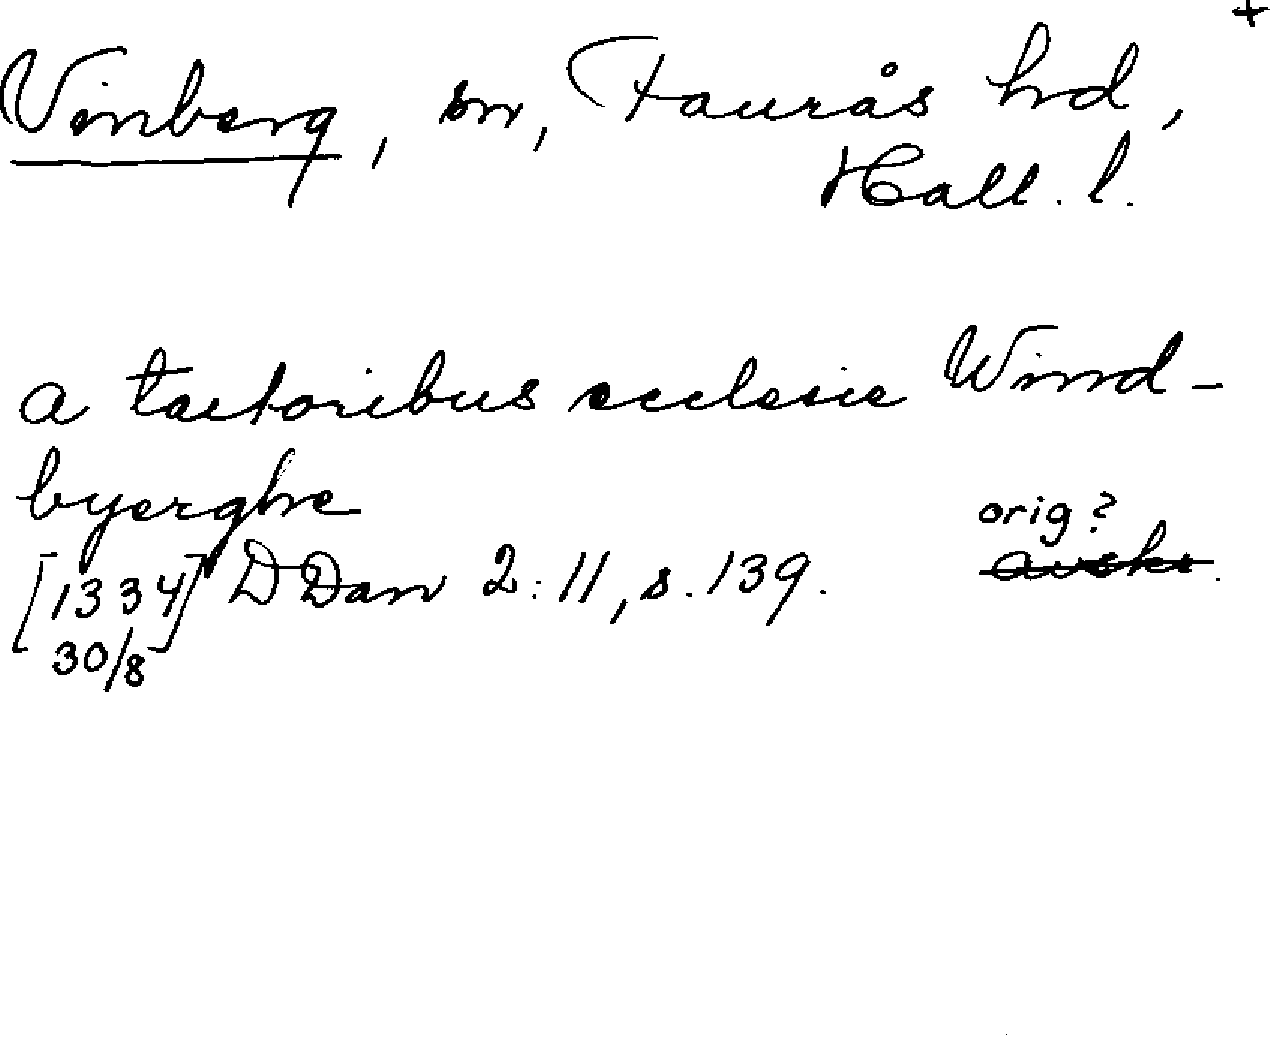 +
Vinberg, sn, Faurås hd,
Hall. l.
a tactoribus ecclesie Wind-
byerghe
[1334 30/8] DDan 2:11, s. 139. orig?
avskr.